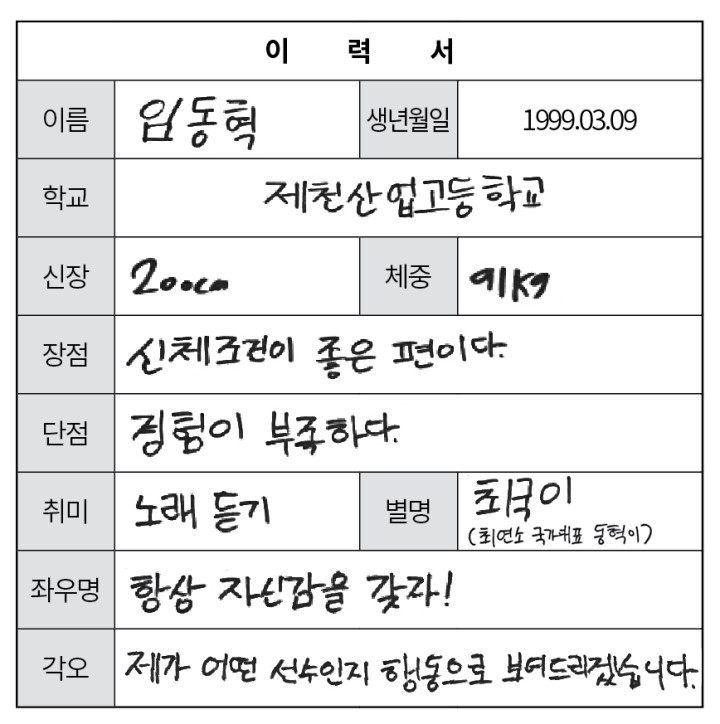 이 력 서
이름 임동혁 생년월일 1999.03.09
학교 제천산업고등학교
신장 200cm 체중 91kg
장점 신체조건이 좋은 편이다.
단점 경험이 부족하다.
취미 노래 듣기 별명 최국이
(최연소 국가대표 동혁이)
좌우명 항상 자신감을 갖자!
각오 제가 어떤 선수인지 행동으로 보여드리겠습니다.